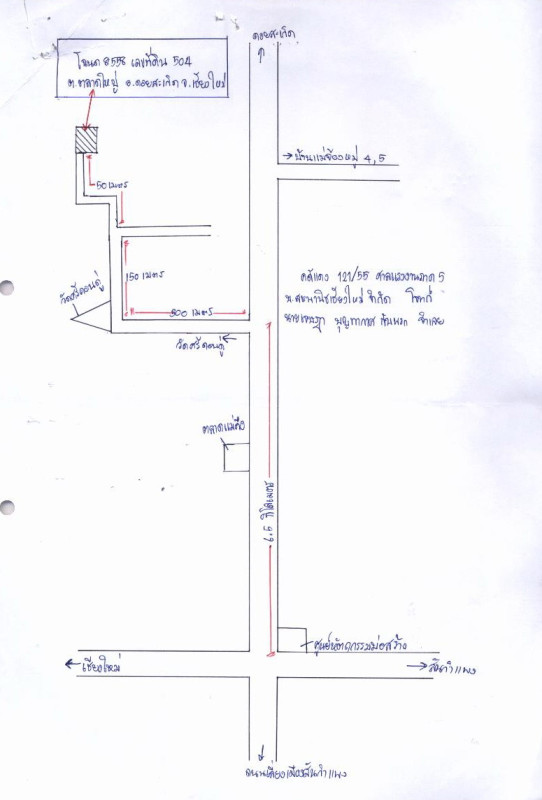 ดอยสะเก็ด
โฉนด 8558 เลขที่ดิน 504
ต.ตลาดใหญ่ อ.ดอยสะเก็ด จ.เชียงใหม่
บ้านแม่จ้องหมู่ 4,5
50 เมตร
150 เมตร
วัดศรีดอนดู่
คดีแดง 121/55 ศาลแรงงานภาค 5
800 เมตร
เชียงใหม่ จำกัด โจทก์
จำเลย
วัดศรีดอนดู่
ตลาดแม่คือ
6.5 กิโลเมตร
ศูนย์หัตถกรรมบ่อสร้าง
เชียงใหม่
สันกำแพง
ถนนเลี่ยงเมืองสันกำแพง